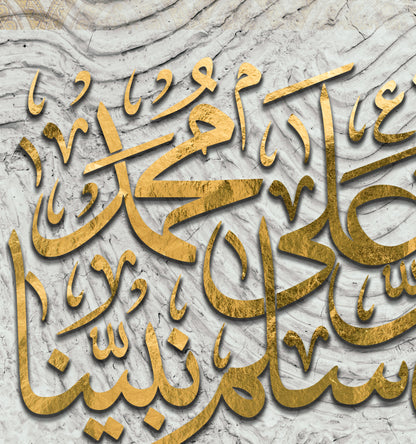 سلم على نبينا محمد